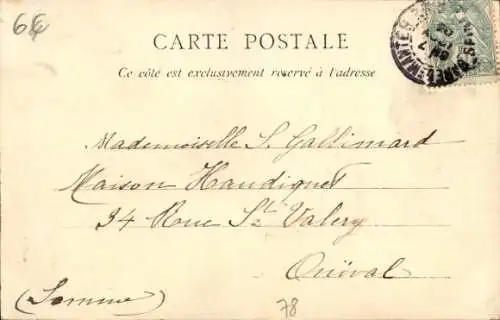 6€
CARTE POSTALE
Ce côté est exclusivement reservé à l'adresse
Mademoiselle S. Gallimard
Maison Haudiquet
34 Rue St Valery
Onival
(Somme)
78